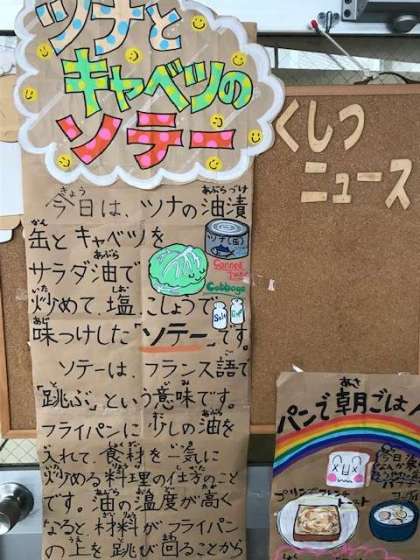 ツナと
キャベツの
ソテー
今日は、ツナの油漬
缶とキャベツを
サラダ油で
炒めて、塩、こしょうで
味つけした「ソテー」です。
ソテーは、フランス語で
「跳ぶ」という意味です。
フライパンに少しの油を
入れて、食材を一気に
炒める料理の仕方のこと
です。油の温度が高く
なると材料がフライパン
の上を跳び回ることから
ツナ(缶)
Canned
Tuna
Cabbage
Salt
くしつ
ニュース
パンで朝ごは